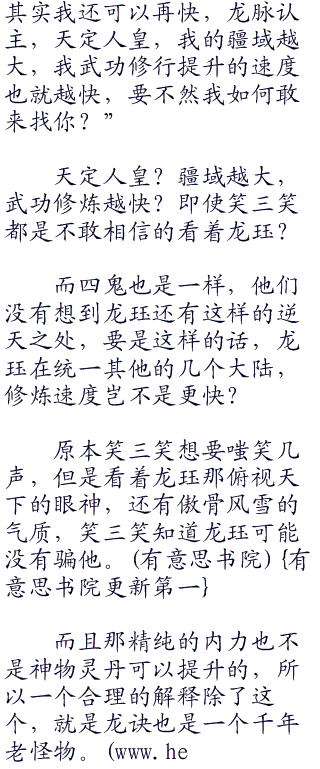 其实我还可以再快，龙脉认
主，天定人皇，我的疆域越
大，我武功修行提升的速度
也就越快，要不然我如何敢
来找你？”
天定人皇？疆域越大，
武功修炼越快？即使笑三笑
都是不敢相信的看着龙珏？
而四鬼也是一样，他们
没有想到龙珏还有这样的逆
天之处，要是这样的话，龙
珏在统一其他的几个大陆，
修炼速度岂不是更快？
原本笑三笑想要嗤笑几
声，但是看着龙珏那俯视天
下的眼神，还有傲骨风雪的
气质，笑三笑知道龙珏可能
没有骗他。(有意思书院) {有
意思书院更新第一}
而且那精纯的内力也不
是神物灵丹可以提升的，所
以一个合理的解释除了这
个，就是龙诀也是一个千年
老怪物。(www.he